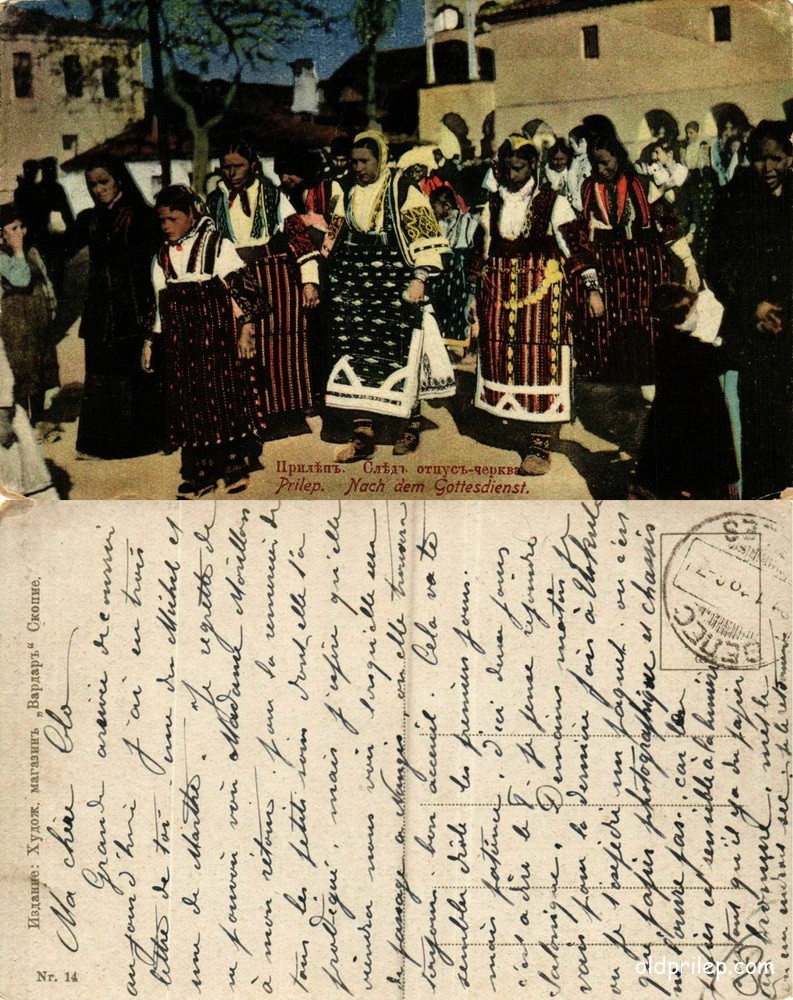 Прилѣпъ. Слѣдъ отпусъ-черква
Prilep. Nach dem Gottesdienst.
Издание: Худож. магазинъ „Вардаръ“ Скопие.
Nr. 14
Ma chère Clo
Grande arrivée de courrier
aujourd'hui j'ai eu trois
lettre de toi une de Michel et
une de Marthe. Je regrette de
ne pouvoir voir Madame Morillon
à mon retour, pour la remercier de
tous les petits soins dont elle t'a
prodigué, mais j'espère qu'elle
viendra nous voir lorsqu'elle sera
de passage à Nangis, ou elle trouvera
toujours bon accueil. Cela va te
sembler drôle les premiers jours
mais patience, d'ici deux jours
c'est à dire le 9 je pense rejoindre
Salonique. Demain matin je
vais pour la dernière fois à Uskub
ou je t'expédie un paquet ou c'est
que papier photographique et chassis
ne l'ouvre pas, car les
papiers est sensible à la lumière
tout qu'il y a du papier
mets le
en un endroit sec, je le retournerai
ВЕЛЕС
oldprilep.com